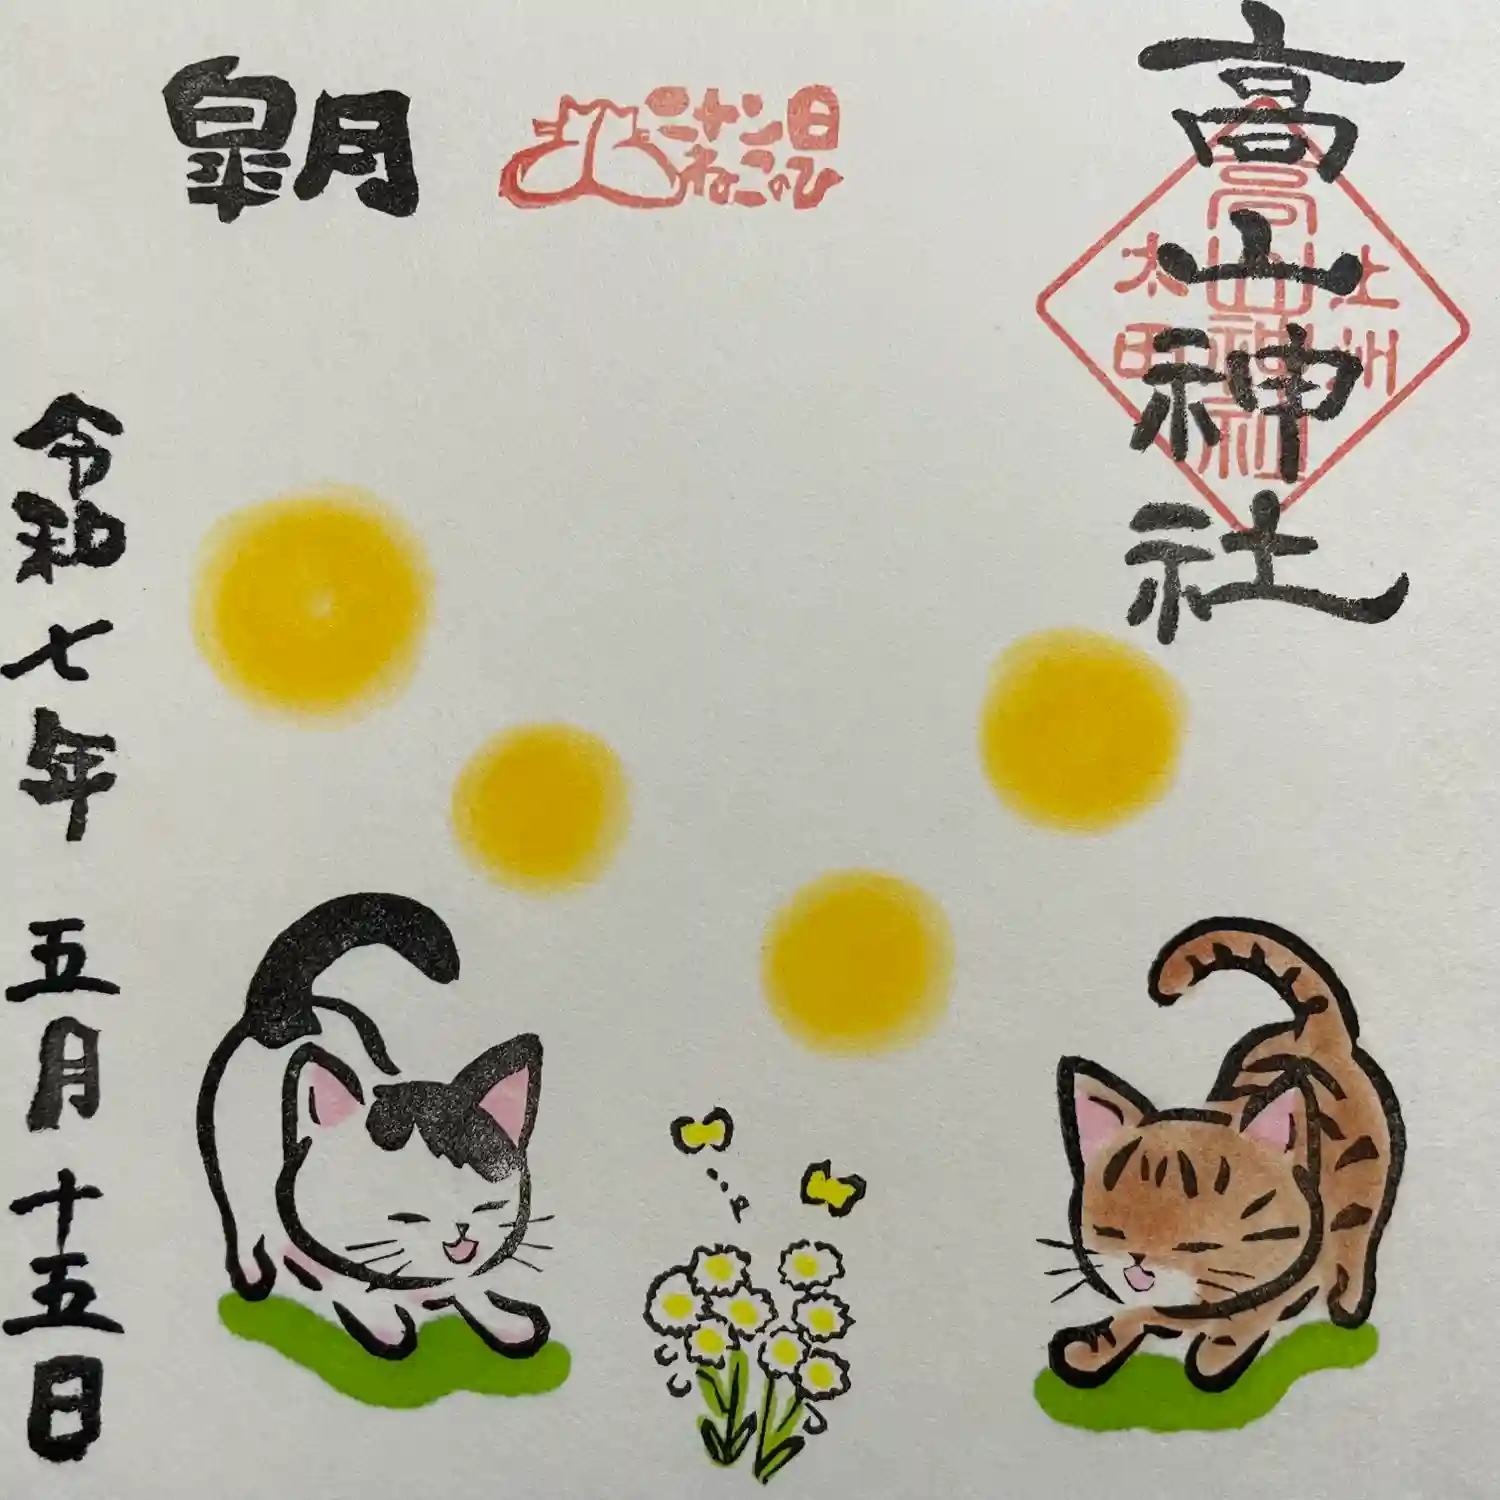 高山神社
上州
高山神社
太田
ねこのひ
皐月
令和七年 五月十五日